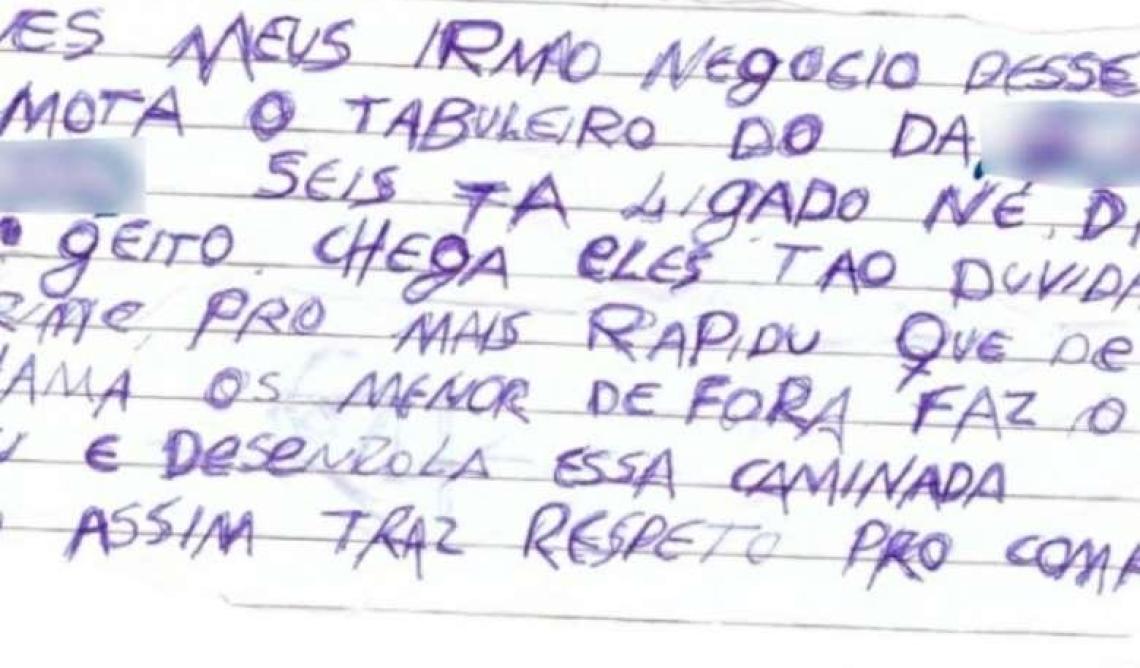 ES MEUS IRMÃO NEgOCIO DESSE
MOTA O TABULEIRO DO DA
SEIS TA LIgADO NÉ D
gEITO CHEgA ELES TAO DUVIDA
PRO MAIS RAPIDU QUE De
AMA OS MENOR DE FORA FAZ O
E DeSeNZOLA ESSA CAMINADA
ASSIM TRAZ RESPETO PRO COMA